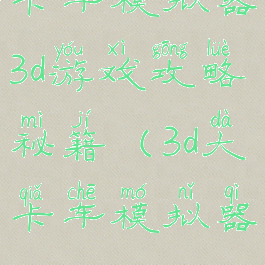 卡车模拟器
yóu xì gōng lüè
3d游戏攻略
mì jí dà
秘籍（3d大
qiǎ chē mó nǐ qì
卡车模拟器